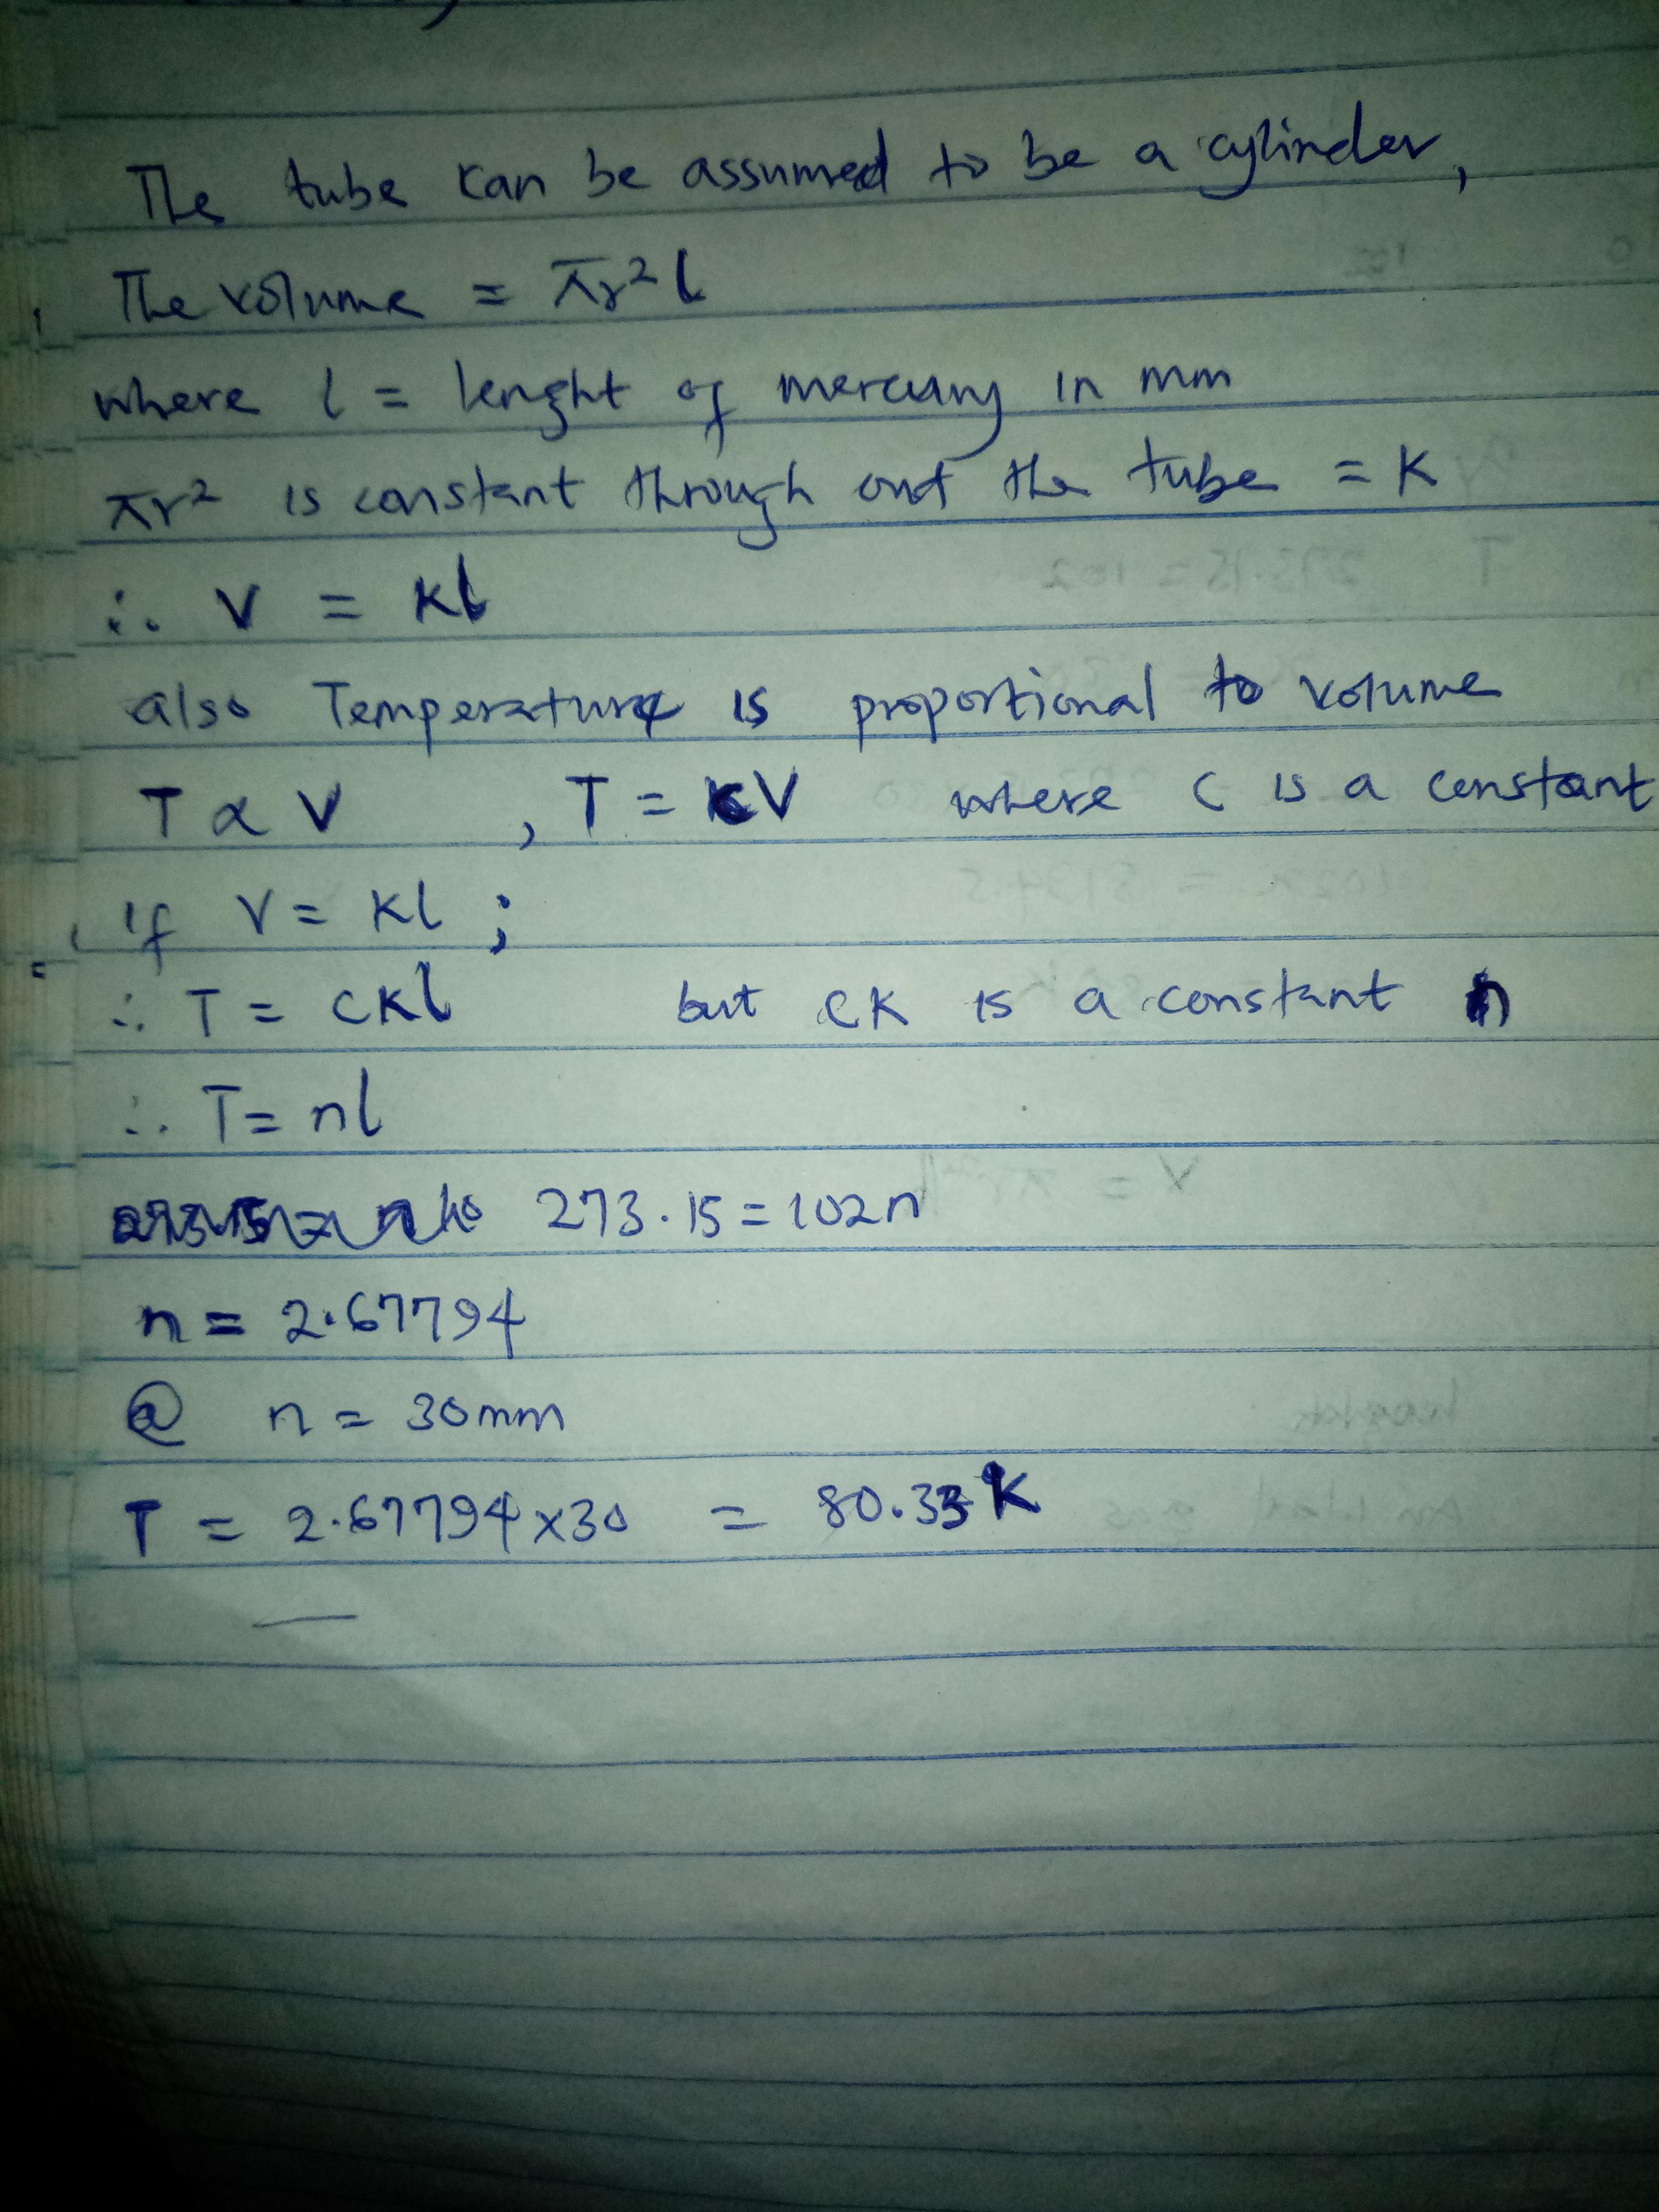 The tube can be assumed to be a cylinder,
The volume = πr² l
where l = lenght of mercury in mm
πr² is constant through out the tube = K
∴ V = kl
also Temperature is proportional to volume
T α V , T = CV where C is a constant
if V = Kl ;
∴ T = CKl but CK is a constant n
∴ T = nl
273.15 = 102n
n = 2.67794
@ n = 30mm
T = 2.67794 x 30 = 80.33 K